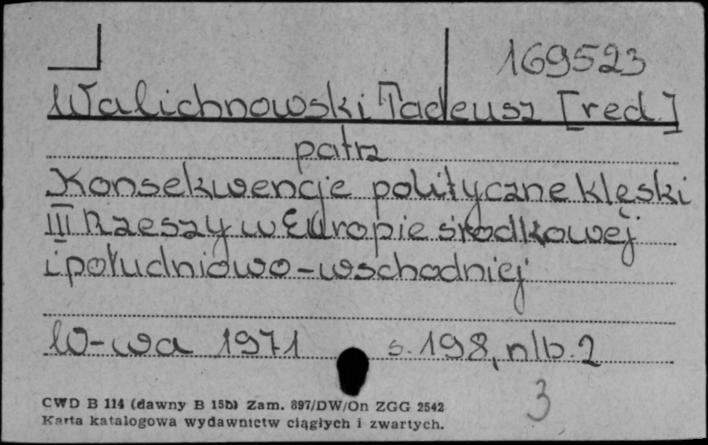 169523
Walichnowski Tadeusz [red.]
patrz
Konsekwencje polityczne klęski
III Rzeszy w Europie środkowej
i południowo-wschodniej
W-wa 1971 s. 198, nlb. 2
3
CWD B 114 (dawny B 15b) Zam. 897/DW/On ZGG 2542
Karta katalogowa wydawnictw ciągłych i zwartych.